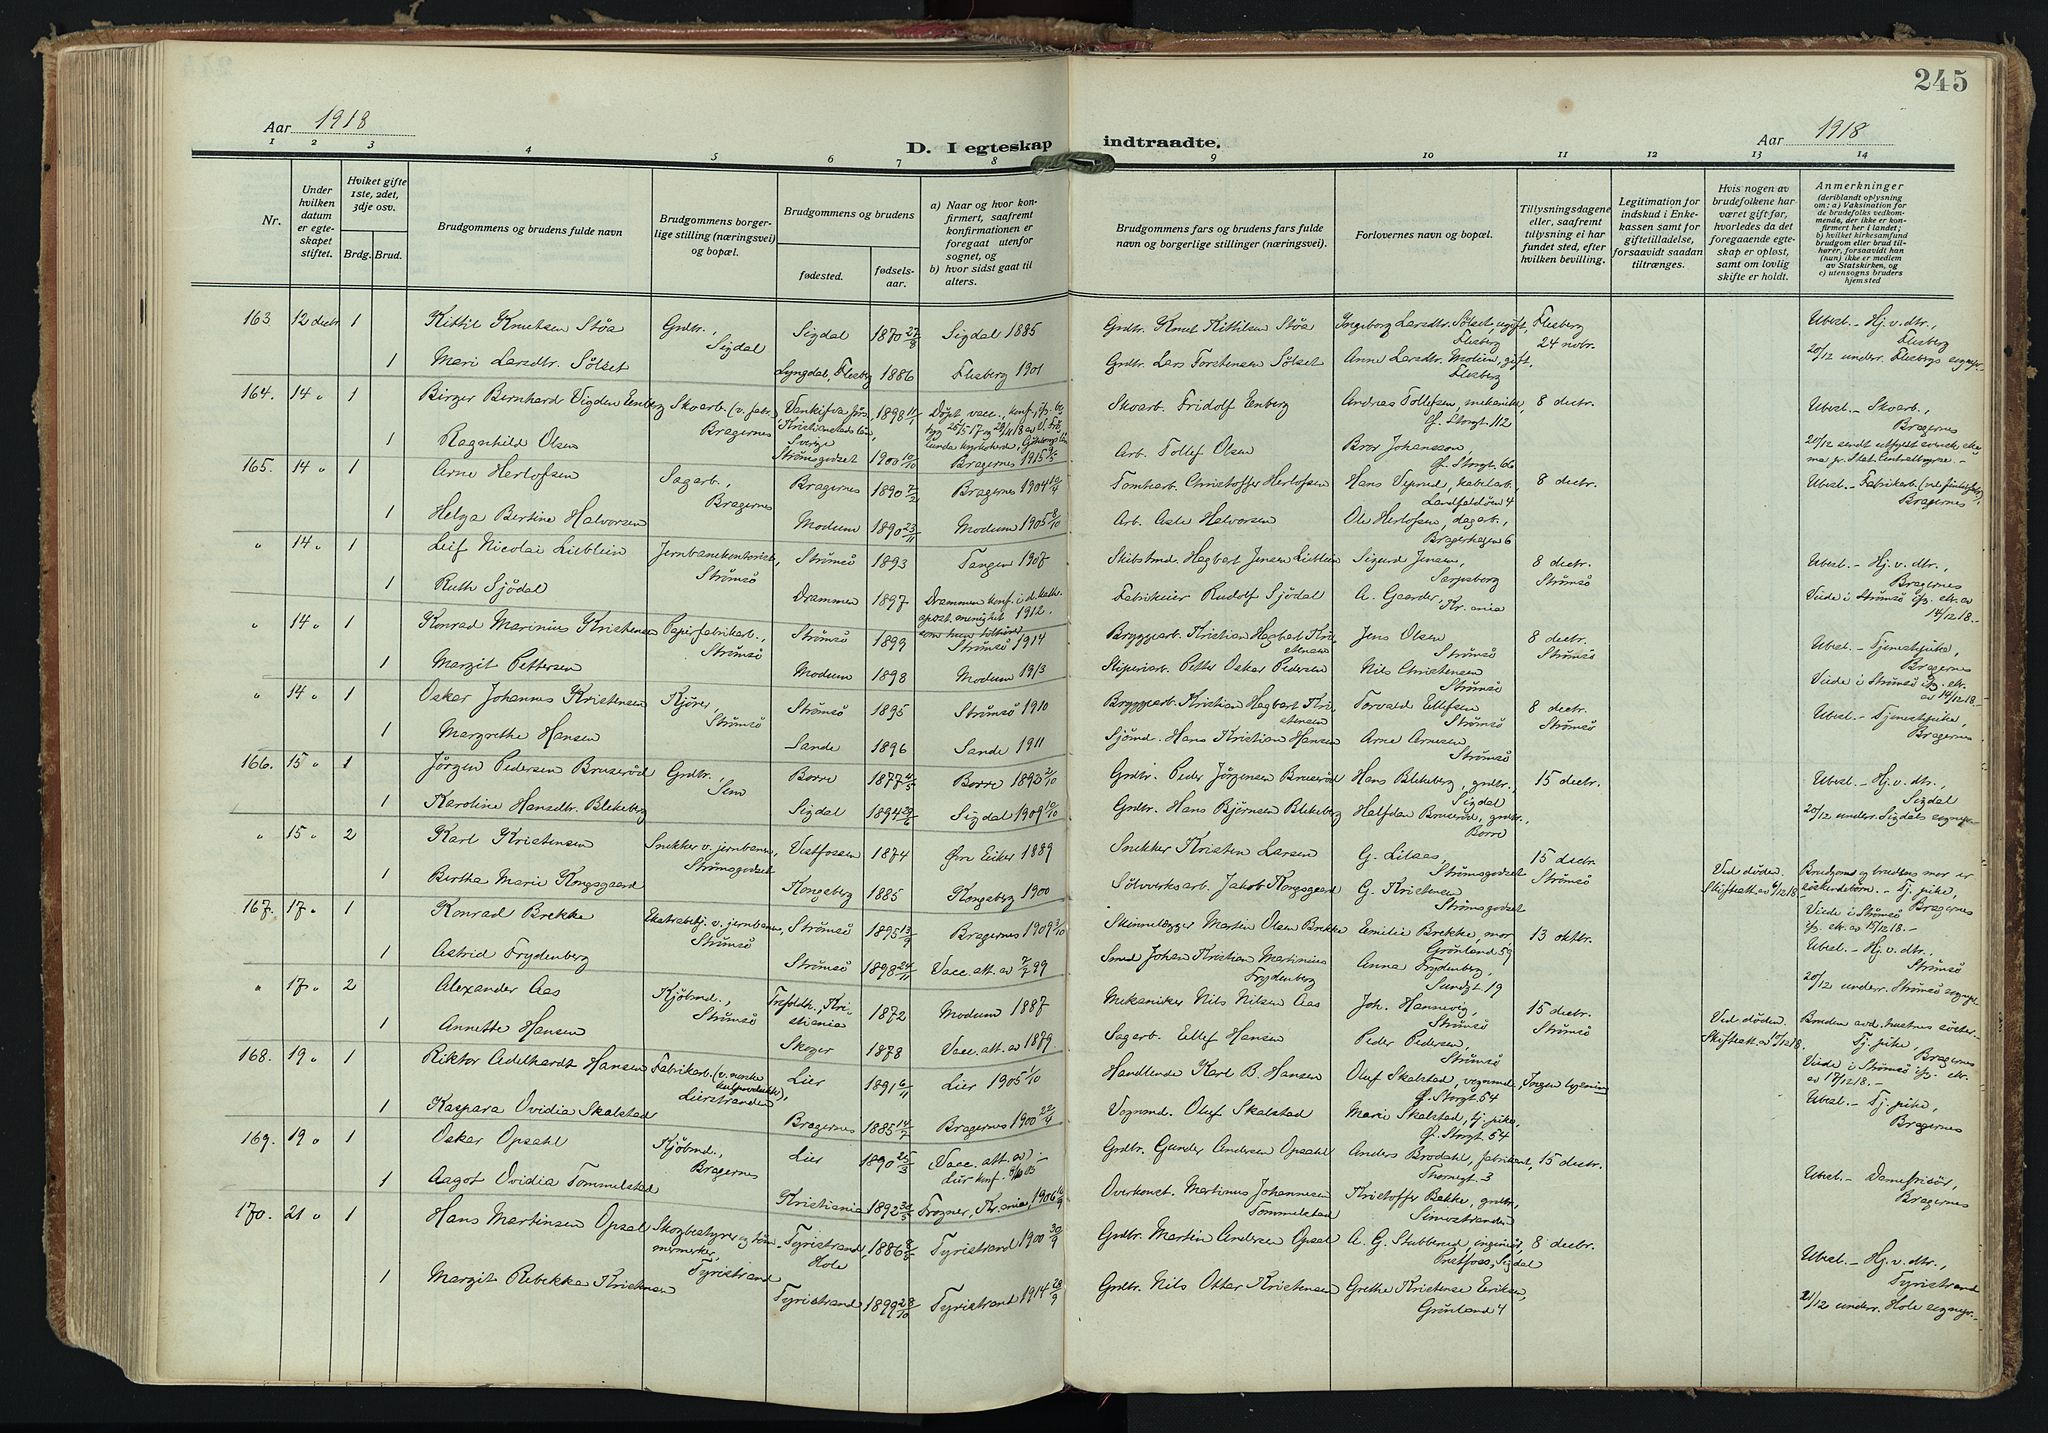 245
Aar 1918
D. I egteskap indtraadte.
Aar 1918
1 2 3 4 5 6 7 8 9 10 11 12 13 14
Nr.
Under hvilken datum er egteskapet stiftet.
Hviket gifte 1ste, 2det, 3dje osv.
Brdg. Brud.
Brudgommens og brudens fulde navn
Brudgommens borgerlige stilling (næringsvei) og bopæl.
Brudgommens og brudens
fødested.
fødselsaar.
a) Naar og hvor konfirmert, saafremt konfirmationen er foregaat utenfor sognet, og
b) hvor sidst gaat til alters.
Brudgommens fars og brudens fars fulde navn og borgerlige stillinger (næringsvei).
Forlovernes navn og bopæl.
Tillysningsdagene eller, saafremt tillysning ei har fundet sted, efter hvilken bevilling.
Legitimation for indskud i Enkekassen samt for giftetilladelse, forsaavidt saadan tiltrænges.
Hvis nogen av brudefolkene har været gift før, hvorledes da det foregaaende egteskap er opløst, samt om lovlig skifte er holdt.
Anmerkninger (deriblandt oplysning om: a) Vaksination for de brudefolks vedkommende, der ikke er konfirmert her i landet; b) hvilket kirkesamfund brudgom eller brud tilhører, forsaavidt han (hun) ikke er medlem av Statskirken, og c) utensogns bruders hjemsted
163. 12 decbr. 1 Kittil Knutsen Støa Grdbr., Sigdal Sigdal 1870 27/8 Sigdal 1885 Grdbr. Knut Kittilsen Støa Ingeborg Larsdtr. Sølset, ugift, Flesberg Flesberg 24 novbr. Ubesl. - Hj.v.dtr., Flesberg
1 Mari Larsdtr. Sølset Lyngdal, Flesberg 1886 Flesberg 1901 Grdbr. Lars Torstensen Sølset Anne Larsdtr. Moliun, gift, Flesberg 20/12 underr. Flesbergs sognepr.
164. 14 " 1 Birger Bernhard Vigden Enberg Skoarb. (v. fabr.) Bragernes Kristianstads län, Sverige 1898 11/1 Skoarb. Fridolf Enberg Andreas Tollefsen, mekaniker, Ø. Storgt. 112 8 decbr. Ubesl. - Skoarb., Bragernes
1 Ragnhild Olsen Strømsgodset 1900 10/10 Bragernes 1915 Arb. Tollef Olsen Bror Johansson, Ø. Storgt. 66
165. 14 " 1 Arne Herlofsen Sagarb., Bragernes Bragernes 1890 7/2 Bragernes 1904 Tomtearb. Christoffer Herlofsen Hans Viprud, Landfaldøen 4 8 decbr. Ubesl. - Fabrikarb. Bragernes
1 Helga Bertine Halvorsen Modum 1890 23/11 Modum 1905 8/10 Arb. Asle Halvorsen Ole Herlofsen, dagarb., Bragerhagen 6
" 14 " 1 Leif Nicolai Lieblein Jernbanekontorist, Strømsø Strømsø 1893 Tangen 1907 Skibstmd. Hagbart Jensen Lieblein Sigurd Jensen, Sarpsborg 8 decbr. Strømsø Ubesl. - Hj.v.dtr., Bragernes
1 Ruth Sjödal Drammen 1897 Drammen konf. i d. kath. apost. menighet 1912. som hun tilhører Fabrikeier Rudolf Sjödal A. Gaarder, Kr.ania Viede i Strømsø ifg. att. av 14/12 18.-
" 14 " 1 Konrad Marinius Kristensen Papirfabrikarb., Strømsø Strømsø 1893 Strømsø 1914 Bryggearb. Kristian Hagbart Kristensen Jens Olsen Strømsø 8 decbr. Strømsø Ubesl. - Tjenestpike, Bragernes
1 Margit Pettersen Modum 1898 Modum 1913 Sliperiarb. Petter Oskar Pedersen Nils Christensen Strømsø Viede i Strømsø ifg. att. av 14/12 18.-
" 14 " 1 Oskar Johannes Kristensen Kjører, Strømsø Strømsø 1895 Strømsø 1910 Bryggearb. Kristian Hagbart Kristensen Torvald Ellefsen Strømsø 8 decbr. Strømsø Ubesl. - Tjenestpike, Bragernes
1 Margrethe Hansen Sande 1896 Sande 1911 Sjømd. Hans Kristian Hansen Arne Arnesen Strømsø
166. 15 " 1 Jørgen Pedersen Bruserød Grdbr., Sem Borre 1877 4/5 Borre 1893 2/10 Grdbr. Peder Jørgensen Bruserød Hans Blekeberg, grdbr., Sigdal 15 decbr. Ubesl. - Hj.v.dtr., Sigdal
1 Karoline Hansdtr. Blekeberg Sigdal 1894 29/6 Sigdal 1909 10/10 Grdbr. Hans Bjørnsen Blekeberg Halfdan Bruserød, grdbr., Borre 20/12 underr. Sigdals sognepr.
" 15 " 2 Karl Kristensen Snekker v. jernbanen, Strømsgodset Vestfossen 1874 Øvre Eiker 1889 Snekker Kristen Larsen G. Lilaas, Strømsgodset 15 decbr. Strømsø Ved døden. Skifteatt. av 6/12 18. Brudgoms og brudens mor er søskendebørn. - Tj.pike, Bragernes
1 Bertha Marie Kongsgaard Kongsberg 1885 Kongsberg 1900 Sølvverksarb. Jakob Kongsgaard G. Kristensen Strømsgodset Viede i Strømsø ifg. att. av 15/12 18.-
167. 17 " 1 Konrad Brekke Ekstrabetj. v. jernbanen, Strømsø Strømsø 1895 13/9 Bragernes 1909 3/10 Skinnelægger Martin Olsen Brekke Emilie Brekke, mor, Grønland 59 13 oktbr. Ubesl. - Hj.v.dtr., Strømsø
1 Astrid Frydenberg Strømsø 1898 24/11 Vacc. att. av 7/2 99 Smed Johan Kristian Martinius Frydenberg Anna Frydenberg, Sundgt. 19 20/12 underr. Strømsø sognepr.
" 17 " 2 Alexander Aas Kjøbmd., Strømsø Trefoldh., Kristiania 1872 Modum 1887 Mekaniker Nils Nilsen Aas Joh. Hannevig, Strømsø 15 decbr. Strømsø Ved døden. Skifteatt. av 17/12 18. Bruden avd. hustrues søster. Tj.pike, Bragernes
1 Annette Hansen Skoger 1878 Vacc. att. av 1879. Sagarb. Ellef Hansen Peder Pedersen, Strømsø Viede i Strømsø ifg. att. av 17/12 18.-
168. 19 " 1 Riktor Adelhardt Hansen Fabrikarb. Lierstranden Lier 1891 6/11 Lier 1905 1/10 Handlende Karl B. Hansen Oluf Skalstad, vognmd. Ø. Storgt. 54 Ingen lysning Ubesl. - Tj.pike, Bragernes
1 Kaspara Ovidia Skalstad Bragernes 1885 14/7 Bragernes 1900 22/4 Vognmd. Oluf Skalstad Marie Skalstad, tj.pike, Ø. Storgt. 54
169. 19 " 1 Oskar Opsahl Kjøbmd., Bragernes Lier 1890 25/3 (Vacc. att. av) Lier konf. Grdbr. Gunder Andersen Opsahl Anders Brodahl, fabrikant, Thornegt. 3 15 decbr. Ubesl. - Damefrisør, Bragernes
1 Aagot Ovidia Tommelstad Kristiania 1892 30/5 Frogner, Kr.ania, 1906 Overkonst. Martinus Johannesen Tommelstad Kristoffer Bakke, grdbr., Simostranden
170. 21 " 1 Hans Martinsen Opsal Skogbestyrer og tømmermerker, Tyristrand Tyristrand, Hole 1886 Tyristrand 1900 30/9 Grdbr. Martin Andersen Opsal A. G. Stubberud, ingeniør, Prestfoss, Sigdal 8 decbr. Ubesl. - Hj.v.dtr., Tyristrand
1 Margit Rebekka Kristensen Tyristrand 1899 28/10 Tyristrand 1914 28/9 Grdbr. Nils Otter Kristensen Grethe Kristense Eriksen, Grønland 4 21/12 underr. Hole sognepr.